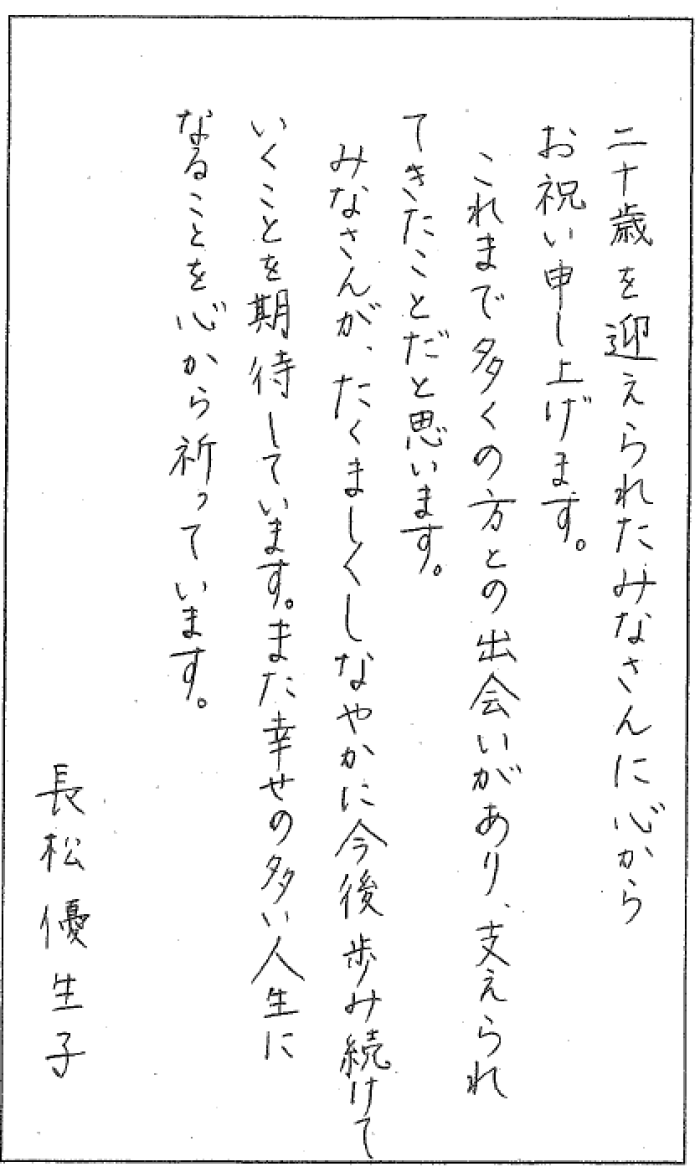 二十歳を迎えられたみなさんに心から
お祝い申し上げます。
これまで多くの方との出会いがあり、支えられ
てきたことだと思います。
みなさんが、たくましくしなやかに今後歩み続けて
いくことを期待しています。また幸せの多い人生に
なることを心から祈っています。
長松優生子